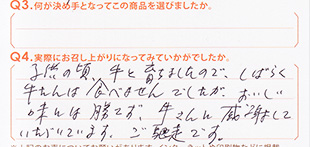 Q3.何が決め手となってこの商品を選びましたか。
Q4.実際にお召し上がりになってみていかがでしたか。
子供の頃、牛と育ちましたので、しばらく
牛たんは食べませんでしたが、おいしい
味には勝てず、牛さんに感謝して
いただいています。ご馳走です。